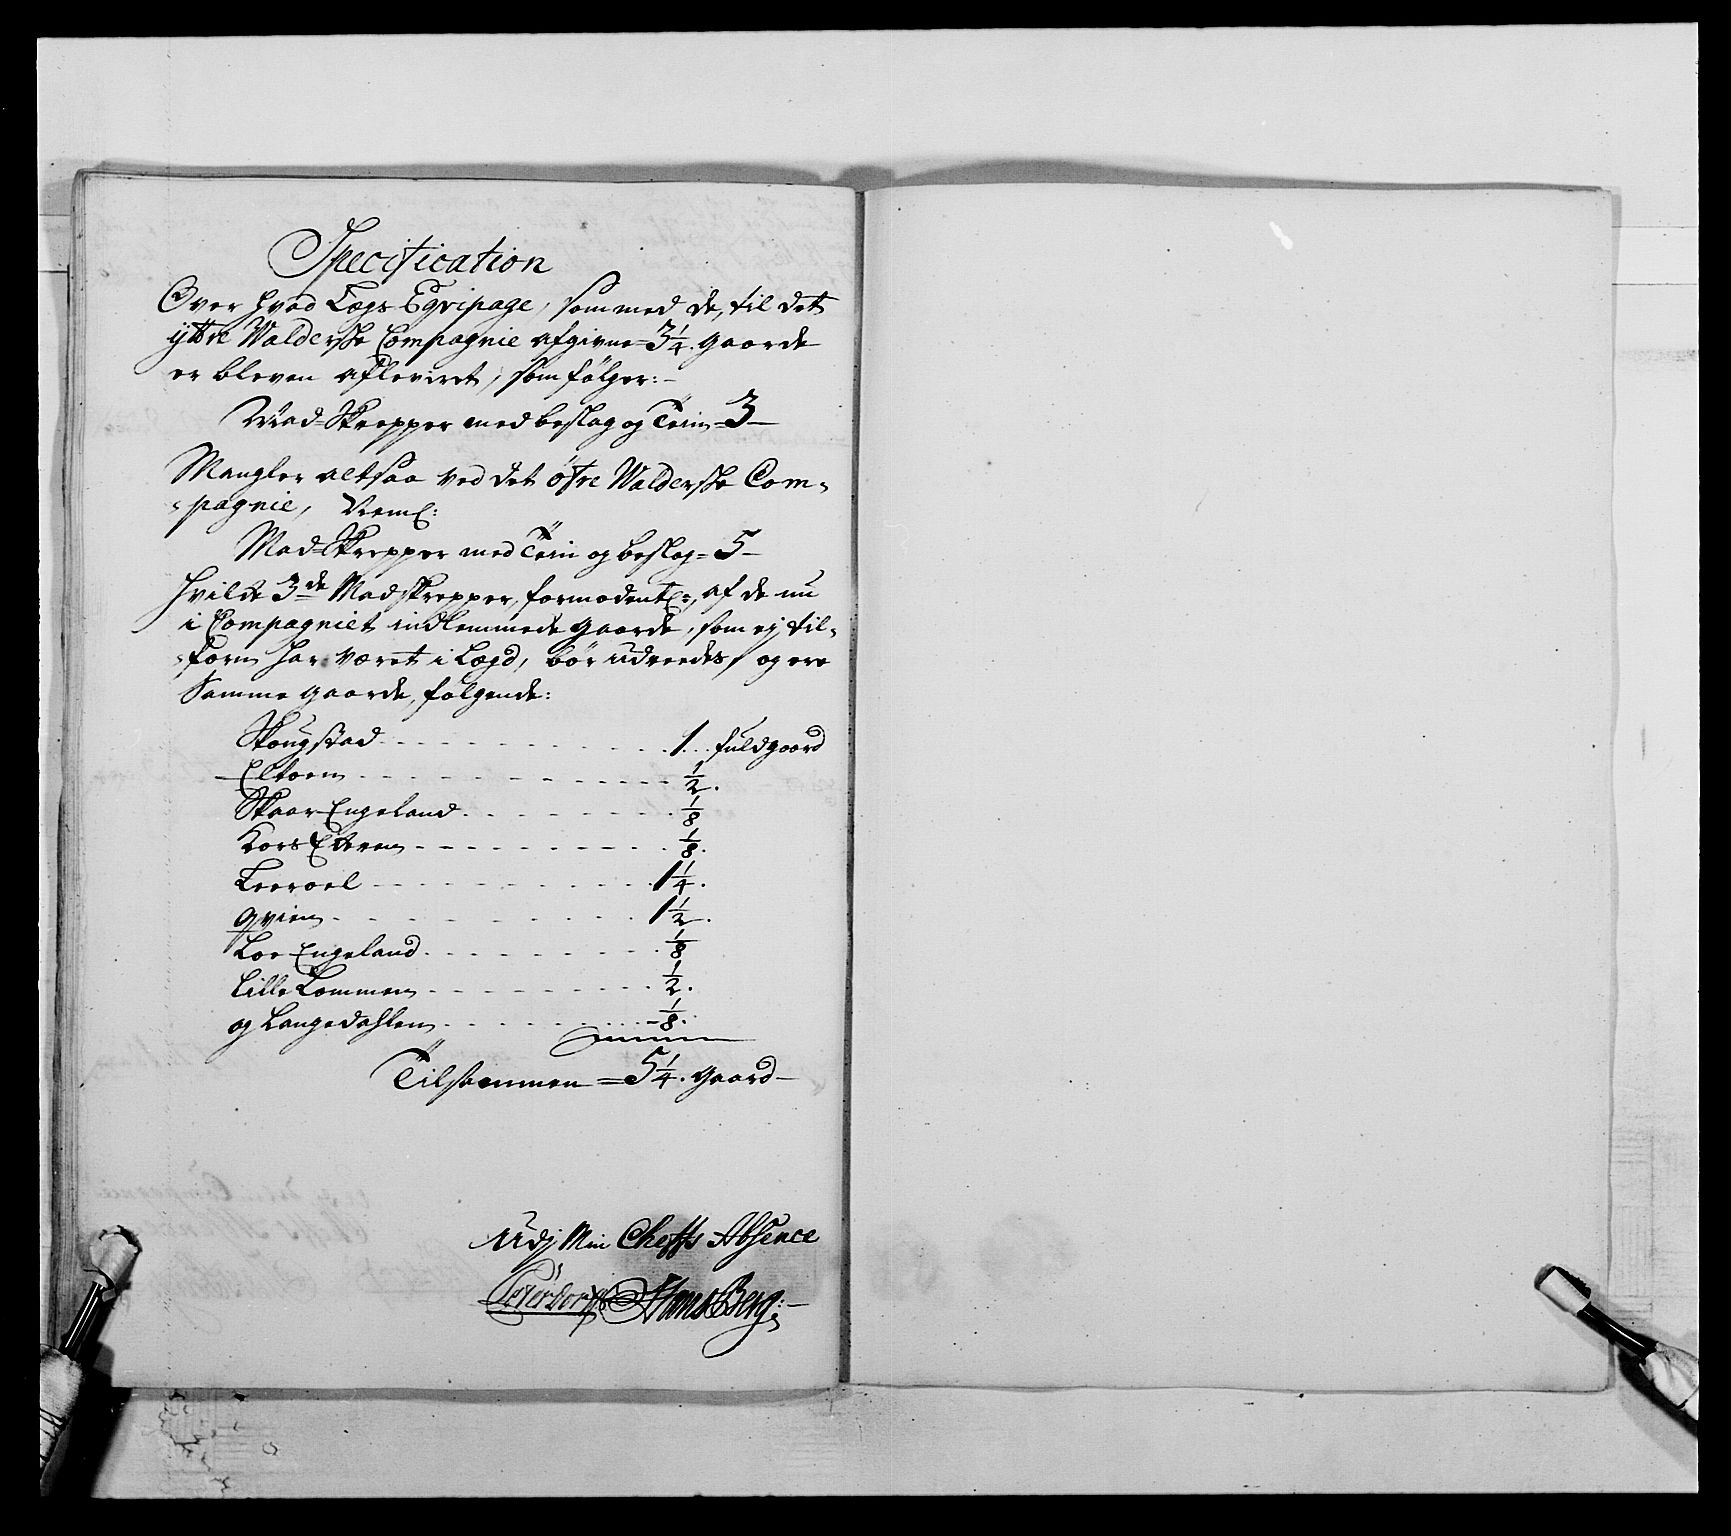 Specification
Over hvad Lægs Eqvipage, som med de, til det
ÿttre Valderske Compagnie afgivne 3 1/4. gaarde
er bleven afleveret, som følger:-
Mad-Skrepper med beslag og Tein = 3-
Mangler altsaa ved det öfre Valderske Com-
-pagnie, Neml:
Mad-Skrepper med Tein og beslag = 5-
hvilke 3de Madskrepper, formodentl:, af de nu
i Compagniet indlemmede gaarde, som ej til-
-forn har været i Lægd, bör udreedes, og ere
Samme gaarde, følgende:
Skougstad - - - 1 . . fuldgaard
- - - 1/2.
Skaar Engeland - - - 1/8
Kors - - - 1/8.
- - - 1 1/4.
Qvien - - - 1 1/2.
Loe Engeland - - - 1/8
Lille Lommen - - - 1/2.
og Langedahlen - - - 1/8.
Tilsammen = 5 1/4. gaard-
Udj Min Cheffs Absence
Hans Berg:-